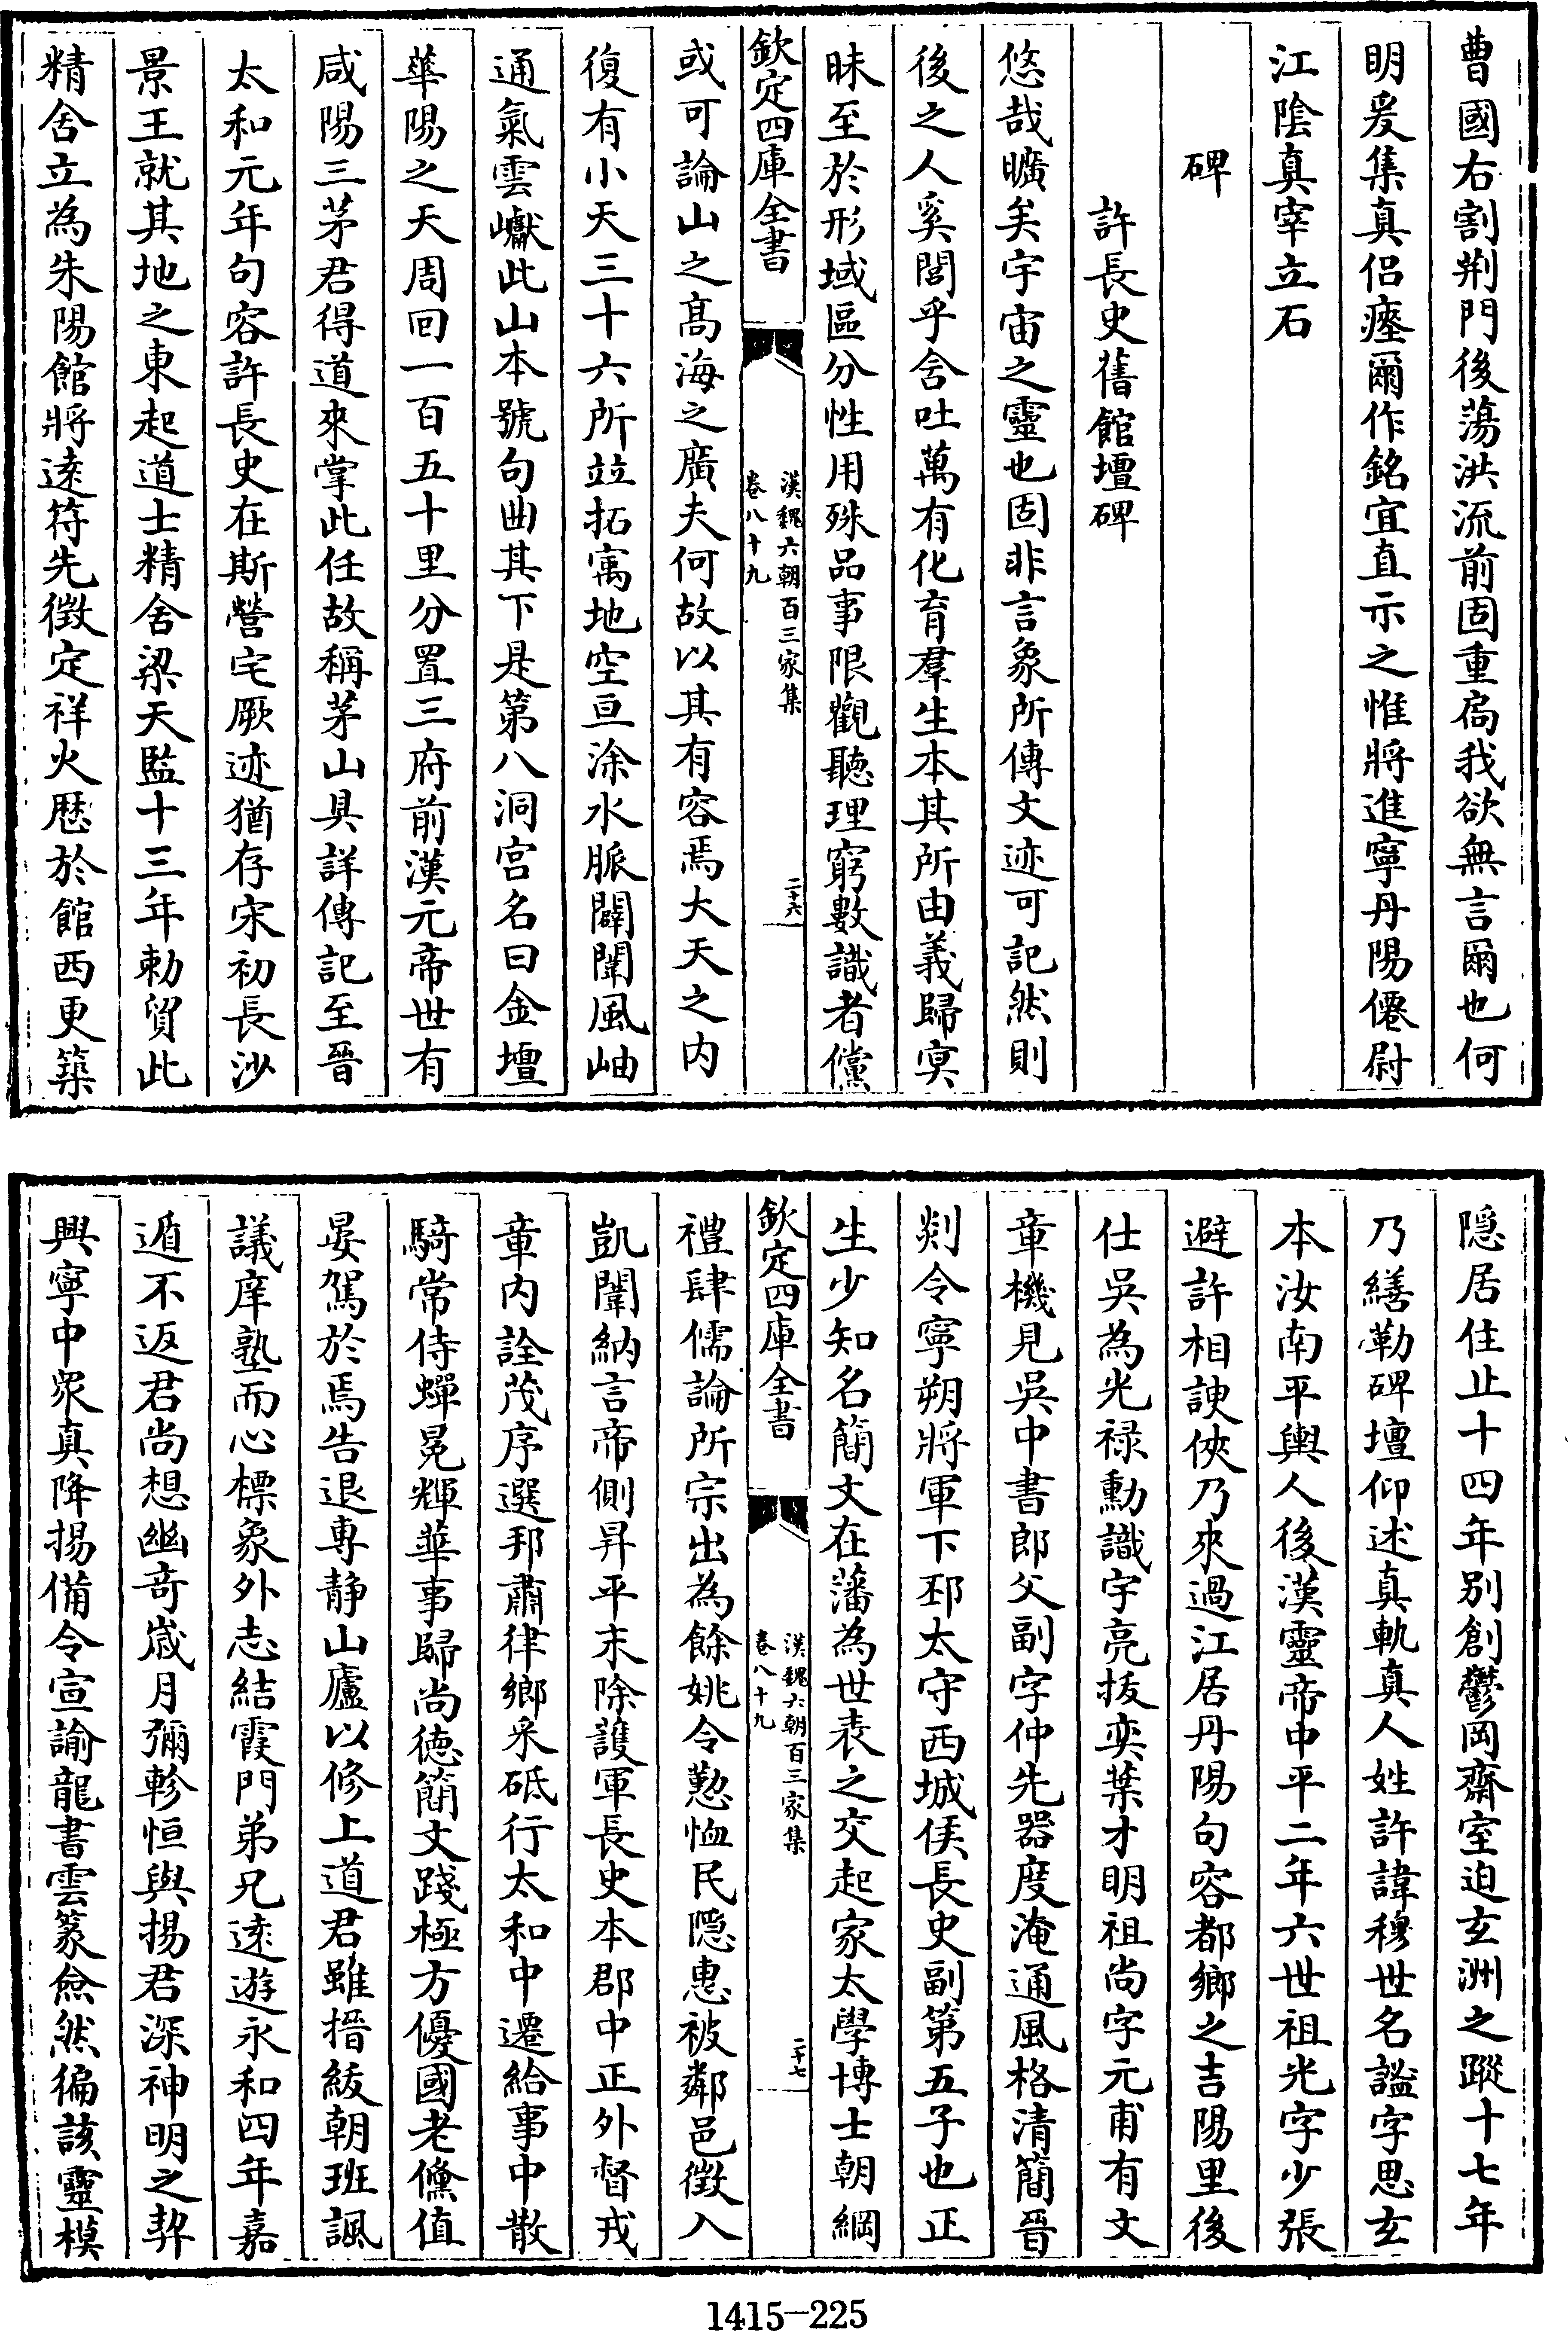 曹國右割荆門後蕩洪流前固重扃我欲無言爾也何
明爰集真侣瘞爾作銘宜直示之惟將進寧丹陽僊尉
江陰真宰立石
碑
許長史舊館壇碑
悠哉曠矣宇宙之靈也固非言象所傳文迹可記然則
後之人奚閲乎含吐萬有化育羣生本其所由義歸冥
昧至於形域區分性用殊品事限觀聽理窮數識者儻
欽定四庫全書
漢魏六朝百三家集
卷八十九
二十六
或可論山之髙海之廣夫何故以其有容焉大天之内
復有小天三十六所竝拓寓地空亘涂水脈闢闡風岫
通氣雲巘此山本號句曲其下是第八洞宫名曰金壇
華陽之天周回一百五十里分置三府前漢元帝世有
咸陽三茅君得道來掌此任故稱茅山具詳傳記至晉
太和元年句容許長史在斯營宅厥迹猶存宋初長沙
景王就其地之東起道士精舍梁天監十三年勅貿此
精舍立為朱陽館將逺符先徴定祥火厯於館西更築
隠居住止十四年别創鬱岡齋室追玄洲之蹤十七年
乃繕勒碑壇仰述真軌真人姓許諱穆世名謐字思玄
本汝南平輿人後漢靈帝中平二年六世祖光字少張
避許相諛俠乃來過江居丹陽句容都鄉之吉陽里後
仕吳為光禄勳識宇亮拔奕葉才明祖尚字元甫有文
章機見吳中書郎父副字仲先器度淹通風格清簡晉
剡令寧朔將軍下邳太守西城侯長史副第五子也正
生少知名簡文在藩為世表之交起家太學博士朝綱
欽定四庫全書
漢魏六朝百三家集
卷八十九
二十七
禮肆儒論所宗出為餘姚令懃恤民隠惠被鄰邑徴入
凱闈納言帝側昇平末除護軍長史本郡中正外督戎
章内詮茂序選邦肅律鄉采砥行太和中遷給事中散
騎常侍蟬冕輝華事歸尚徳簡文踐極方優國老儻值
晏駕於焉告退專静山廬以修上道君雖搢紱朝班諷
議庠塾而心標象外志結霞門弟兄逺遊永和四年嘉
遁不返君尚想幽竒嵗月彌軫恒與揚君深神明之契
興寧中衆真降揚備令宣諭龍書雲篆僉然徧該靈模
1415-225